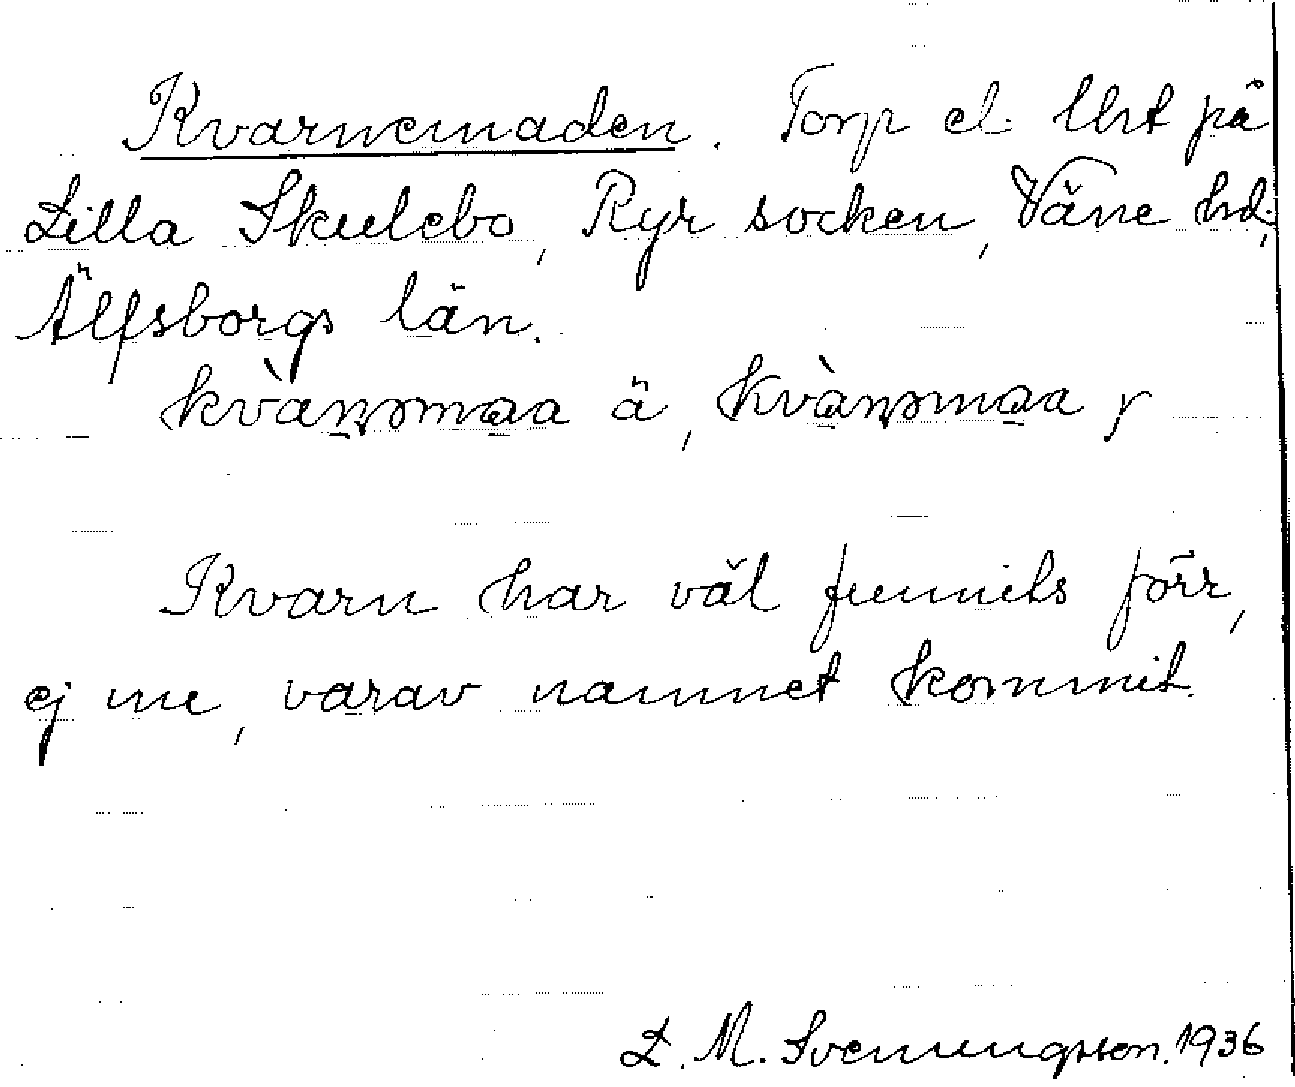 Kvarnemaden. Torp el. lht på
Lilla Skulebo, Ryr socken, Väne hd,
Älfsborgs län.
kvànəmaa ä, kvànəmaa r
Kvarn har väl funnits förr,
ej nu, varav namnet kommit.
L. M. Svenungsson. 1936